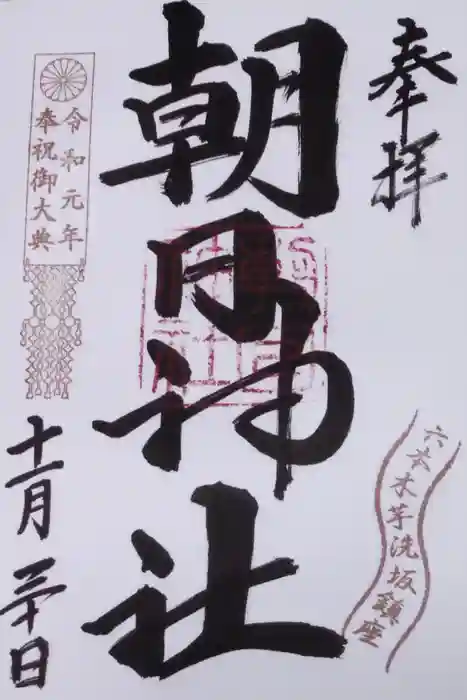 奉拝
六本木芋洗坂鎮座
朝日神社
令和元年
奉祝御大典
十一月三十日